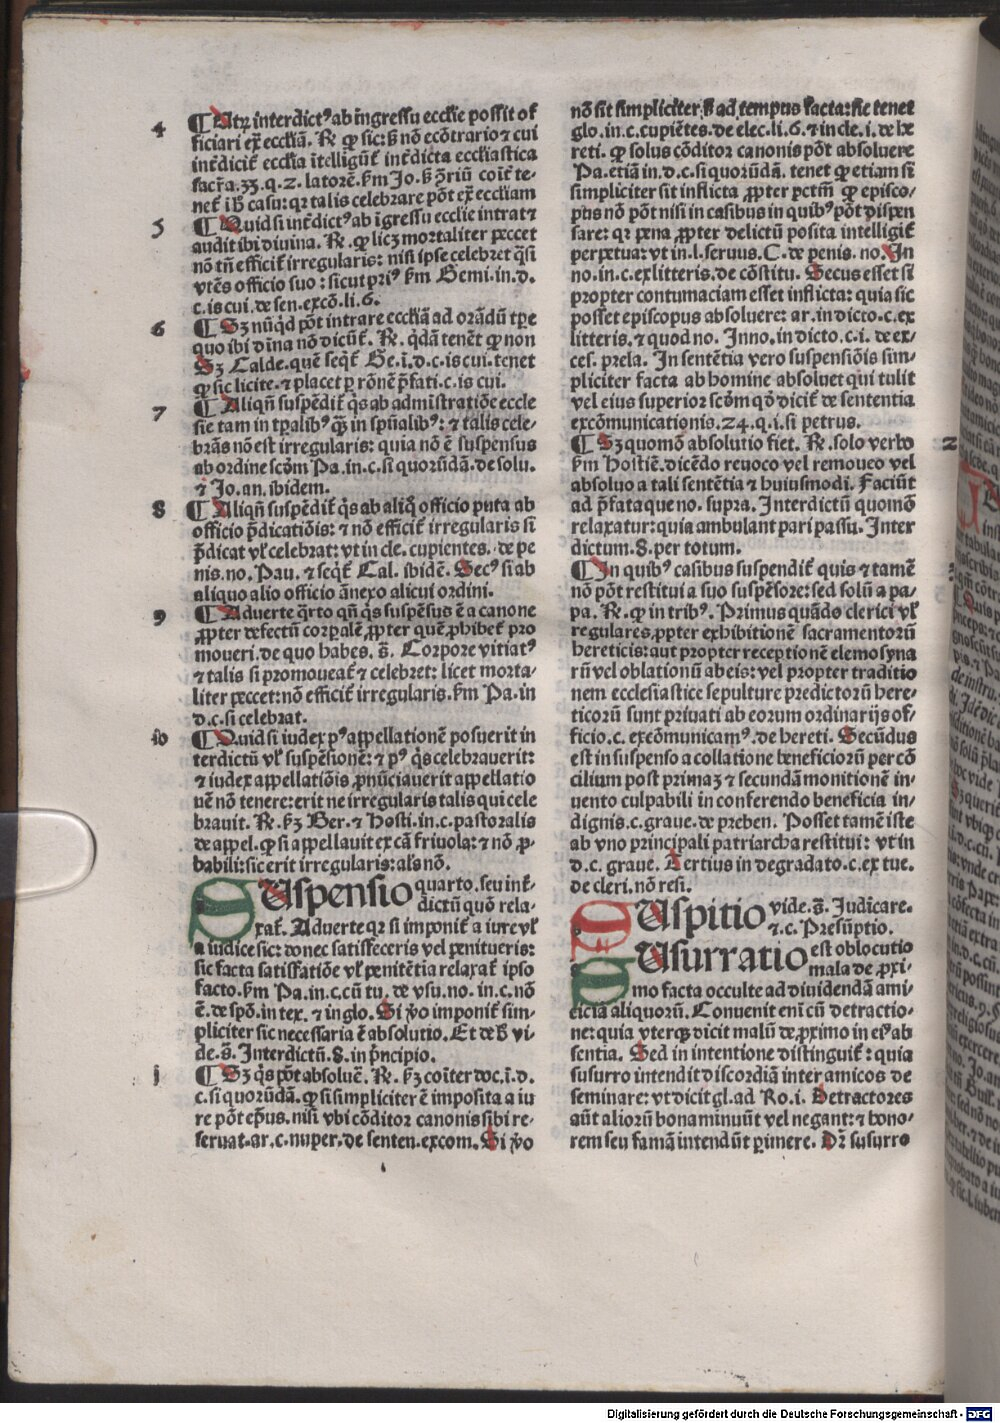 4 ¶ Utrū interdictꝰ ab ingressu ecclīe possit of
ficiari extra ecclīaꝫ. R̄ ꝙ sic: sꝫ nō ecōtrario ⁊ cui
interdicit̄ ecclīa ītelligit̄ interdicta ecclīastica
sacrā. 33. q. 2. latorē. ẜm Jo. sꝫ ꝯriū coīt̄ te-
net̄ ī hoc casu: qꝛ talis celebrare pōt extra ecclīam
5 ¶ Quid si interdictꝰ ab īgressu ecclīe intrat ⁊
audit ibi diuina. R̄. ꝙ licꝫ mortaliter peccet
nō tn̄ efficit̄ irregularis: nisi ipse celebret qͣsi
vtēs officio suo: sicut priꝰ ẜm Gemi. in. d.
c. is cui. de sen. excō. li. 6.
6 ¶ Sꝫ nūqͥd pōt intrare ecclīaꝫ ad orādū tp̄e
quo ibi diuīa nō dicūt̄. R̄. qͥdā tenēt ꝙ non
Sꝫ Calde. quē seqͥt̄ Ge. ī. d. c. is cui. tenet
ꝙ sic licite. ⁊ placet ꝑ rōnē p̄fati. c. is cui.
7 ¶ Aliqn̄ suspēdit̄ qͥs ab admīstratiōe eccle
sie tam in tp̄alibꝰ qͣꝫ in spūalibꝰ: ⁊ talis cele-
brās nō est irregularis: quia nō ē suspensus
ab ordine scd̄m Pa. in. c. si quorūdā. de solu.
⁊ Jo. an. ibidem.
8 ¶ Aliqn̄ suspēdit̄ qͥs ab aliqͦ officio puta ab
officio p̄dicatiōis: ⁊ nō efficit̄ irregularis si
p̄dicat vl̓ celebrat: vt in cle. cupientes. de pe
nis. no. Pau. ⁊ seqͥt̄ Cal. ibidē. Secꝰ si ab
aliquo alio officio ānexo alicui ordini.
9 ¶ Aduerte qͣrto qn̄ qͥs suspēsus ē a canone
ꝓpter defectū corpalē ꝓpter quē ꝓhibet̄ pro
moueri. de quo habes. s̄. Corpore vitiatꝰ
⁊ talis si promoueat̄ ⁊ celebret: licet morta-
liter peccet: nō efficit̄ irregularis. ẜm Pa. in
d. c. si celebrat.
10 ¶ Quid si iudex pꝰ appellationē posuerit in
terdictū vl̓ suspēsionē: ⁊ pꝰ qͥs celebrauerit:
⁊ iudex appellatiōis ꝓnūciauerit appellatio
nē nō tenere: erit ne irregularis talis qui cele
brauit. R̄. ẜꝫ Ber. ⁊ Hosti. in. c. pastoralis
de appel. ꝙ si appellauit ex cā friuola: ⁊ nō ꝓ-
babili: sic erit irregularis: als̄ nō.
SUspensio quarto. seu inter-
dictū quō rela-
xat̄. Aduerte qꝛ si imponit̄ a iure vl̓
a iudice sic: donec satisfeceris vel penitueris:
sic facta satisfatiōe vl̓ penitētia relaxat̄ ipso
facto. ẜm Pa. in. c. cū tu. de vsu. no. in. c. nō
ē. de spō. in tex. ⁊ in glo. Si ꝟo imponit̄ sim-
pliciter sic necessaria ē absolutio. Et de hoc vi-
de. s̄. Interdictū. 8. in p̄ncipio.
i ¶ Sꝫ qͥs pōt absoluē. R̄. ẜꝫ coīter doc. ī. d.
c. si quorūdā. ꝙ si simpliciter ē imposita a iu
re pōt ep̄us. nisi vbi cōditor canonis sibi re-
seruat. ar. c. nuper. de senten. excom. Si ꝟo
nō sit simpliciter sꝫ ad tempus facta: sic tenet
glo. in. c. cupiētes. de elec. li. 6. ⁊ in cle. i. de he
reti. ꝙ solus cōditor canonis pōt absoluere
Pa. etiā in. d. c. si quorūdā. tenet ꝙ etiam si
simpliciter sit inflicta ꝓpter pctm̄ ꝙ episco-
pus nō pōt nisi in casibus in quibꝰ pōt dispen
sare: qꝛ pena ꝓpter delictū posita intelligit̄
perpetua: vt in. l. seruus. C. de penis. no. In
no. in. c. ex litteris. de cōstitu. Secus esset si
propter contumaciam esset inflicta: quia sic
posset episcopus absoluere: ar. in dicto. c. ex
litteris. ⁊ quod no. Inno. in dicto. c. i. de ex-
ces. prela. In sentētia vero suspensiōis sim-
pliciter facta ab homine absoluet qui tulit
vel eius superior scd̄m qd̄ dicit̄ de sententia
excōmunicationis. 24. q. i. si petrus.
2 ¶ Sꝫ quomō absolutio fiet. R̄. solo verbo
ẜm Hostiē. dicēdo reuoco vel remoueo vel
absoluo a tali sentētia ⁊ huiusmodi. Faciūt
ad p̄fata que no. supra. Interdictū quomō
relaxatur: quia ambulant pari passu. Inter
dictum. 8. per totum.
¶ In quibꝰ casibus suspendit̄ quis ⁊ tamē
nō pōt restitui a suo suspēsore: sed solū a pa-
pa. R̄. ꝙ in tribꝰ. Primus quādo clerici vl̓
regulares ꝓpter exhibitionē sacramentorū
hereticis: aut propter receptionē elemosyna
rū vel oblationū ab eis: vel propter traditio
nem ecclesiastice sepulture predictorū here-
ticorū sunt priuati ab eorum ordinarijs of-
ficio. c. excōmunicamꝰ. de hereti. Secūdus
est in suspenso a collatione beneficiorū per cō
cilium post primaꝫ ⁊ secundā monitionē in-
uento culpabili in conferendo beneficia in-
dignis. c. graue. de preben. Posset tamē iste
ab vno principali patriarcha restitui: vt in
d. c. graue. Tertius in degradato. c. ex tue.
de cleri. nō resi.
SUspitio vide. s̄. Iudicare.
⁊. c. Presūptio.
SUsurratio est oblocutio
mala de ꝓxi-
mo facta occulte ad diuidendā ami-
ciciā aliquorū. Conuenit enī cū detractio-
ne: quia vterqꝫ dicit malū de ꝓximo in eiꝰ ab
sentia. Sed in intentione distinguit̄: quia
susurro intendit discordiā inter amicos de
seminare: vt dicit gl. ad Ro. i. Detractores
aūt aliorū bona minuūt vel negant: ⁊ bono-
rem seu famā intendūt ꝑimere. Dr̄ susurro
Digitalisierung gefördert durch die Deutsche Forschungsgemeinschaft - DFG